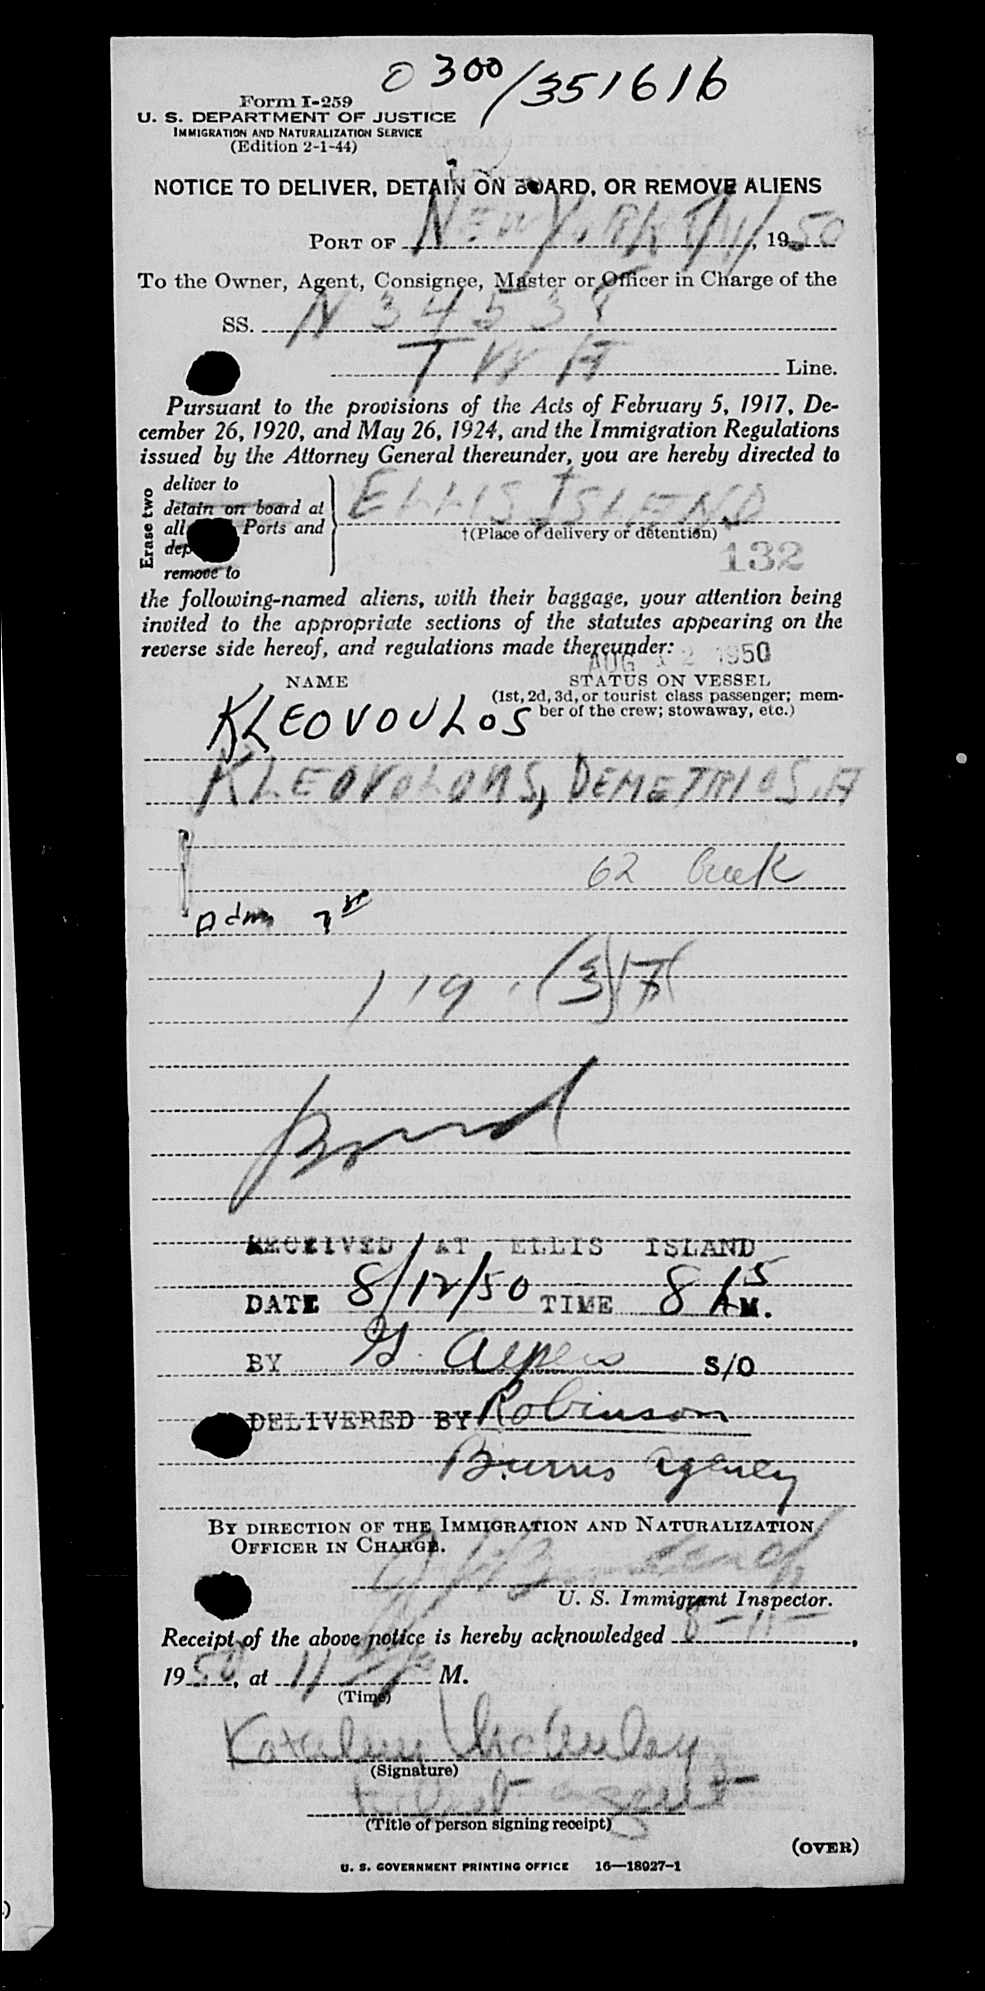 0300/351616
Form I-259
U. S. DEPARTMENT OF JUSTICE
IMMIGRATION AND NATURALIZATION SERVICE
(Edition 2-1-44)
NOTICE TO DELIVER, DETAIN ON BOARD, OR REMOVE ALIENS
PORT OF New York 8/11/, 1950
To the Owner, Agent, Consignee, Master or Officer in Charge of the
SS. N 34538
TWA Line.
Pursuant to the provisions of the Acts of February 5, 1917, De-
cember 26, 1920, and May 26, 1924, and the Immigration Regulations
issued by the Attorney General thereunder, you are hereby directed to
Erase two
deliver to
detain on board at
all Ports and
dep
remove to
ELLIS ISLAND
†(Place of delivery or detention)
132
the following-named aliens, with their baggage, your attention being
invited to the appropriate sections of the statutes appearing on the
reverse side hereof, and regulations made thereunder:
AUG 12 1950
NAME
STATUS ON VESSEL
(1st, 2d, 3d, or tourist class passenger; mem-
ber of the crew; stowaway, etc.)
KLEOVOULOS
KLEOVOLOUS, DEMETRIOS. A
62 Greek
Adm 7th
119 (3)(7)
Bond
RECEIVED AT ELLIS ISLAND
DATE 8/12/50 TIME 8 15 AM.
BY G. S/O
DELIVERED BY Robinson
Burns Agency
BY DIRECTION OF THE IMMIGRATION AND NATURALIZATION
OFFICER IN CHARGE.
U. S. Immigrant Inspector.
Receipt of the above notice is hereby acknowledged 8-11-,
1950, at 11 M.
(Time)
(Signature)
Ticket agent
(Title of person signing receipt)
(OVER)
U. S. GOVERNMENT PRINTING OFFICE 16—18027-1